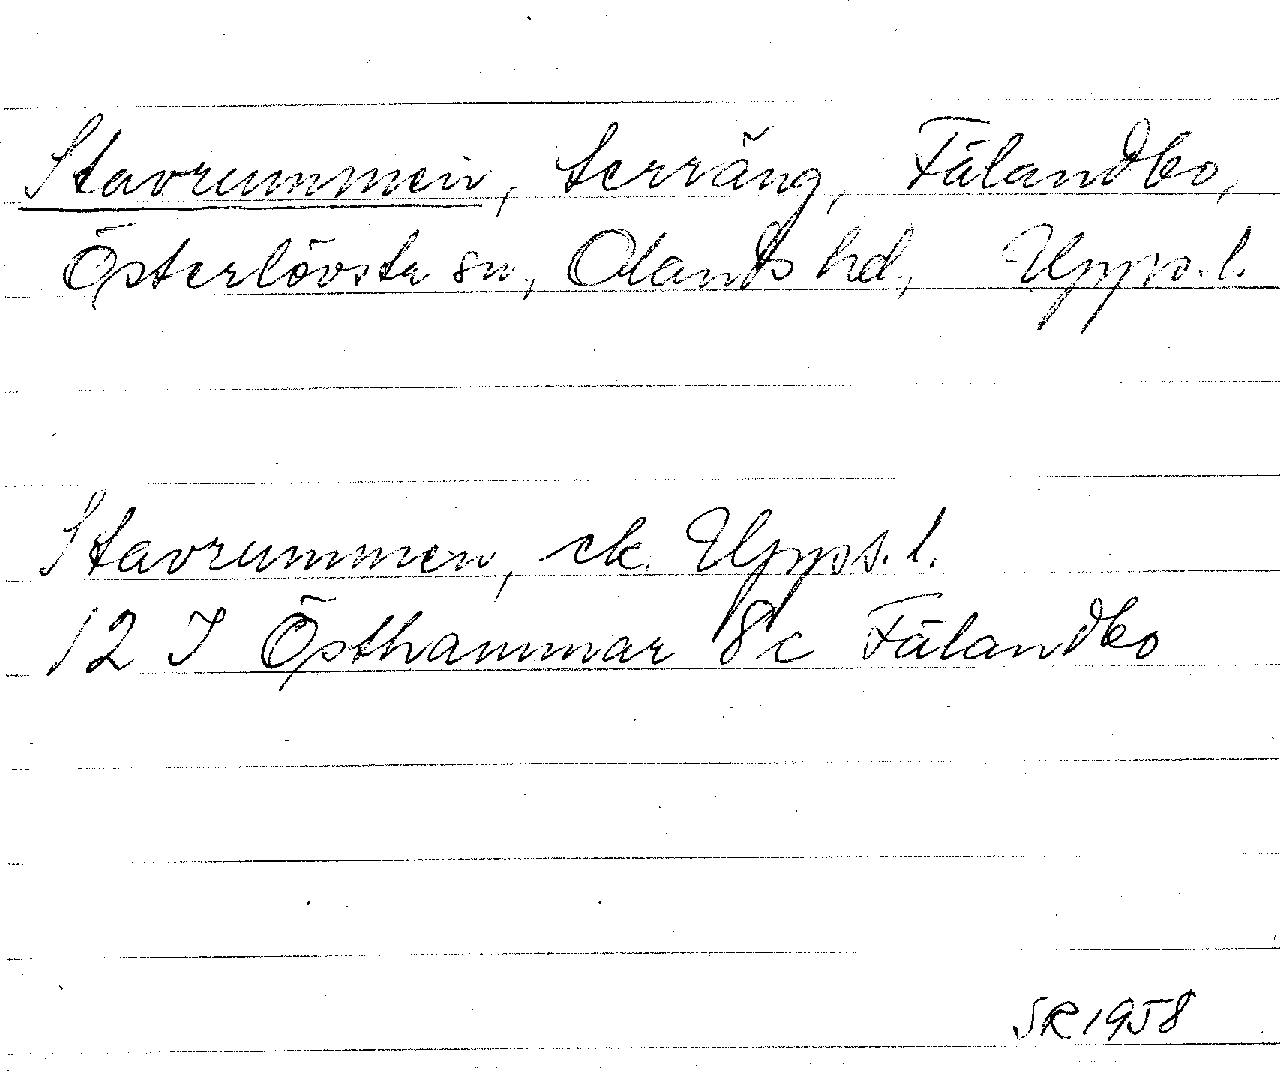 Stavrummen, terräng, Fälandbo,
Österlövsta sn, Olands hd, Upps. l.
Stavrummen, ek. Upps. l.
12 I Östhammar 8c Fälandbo
SR 1958